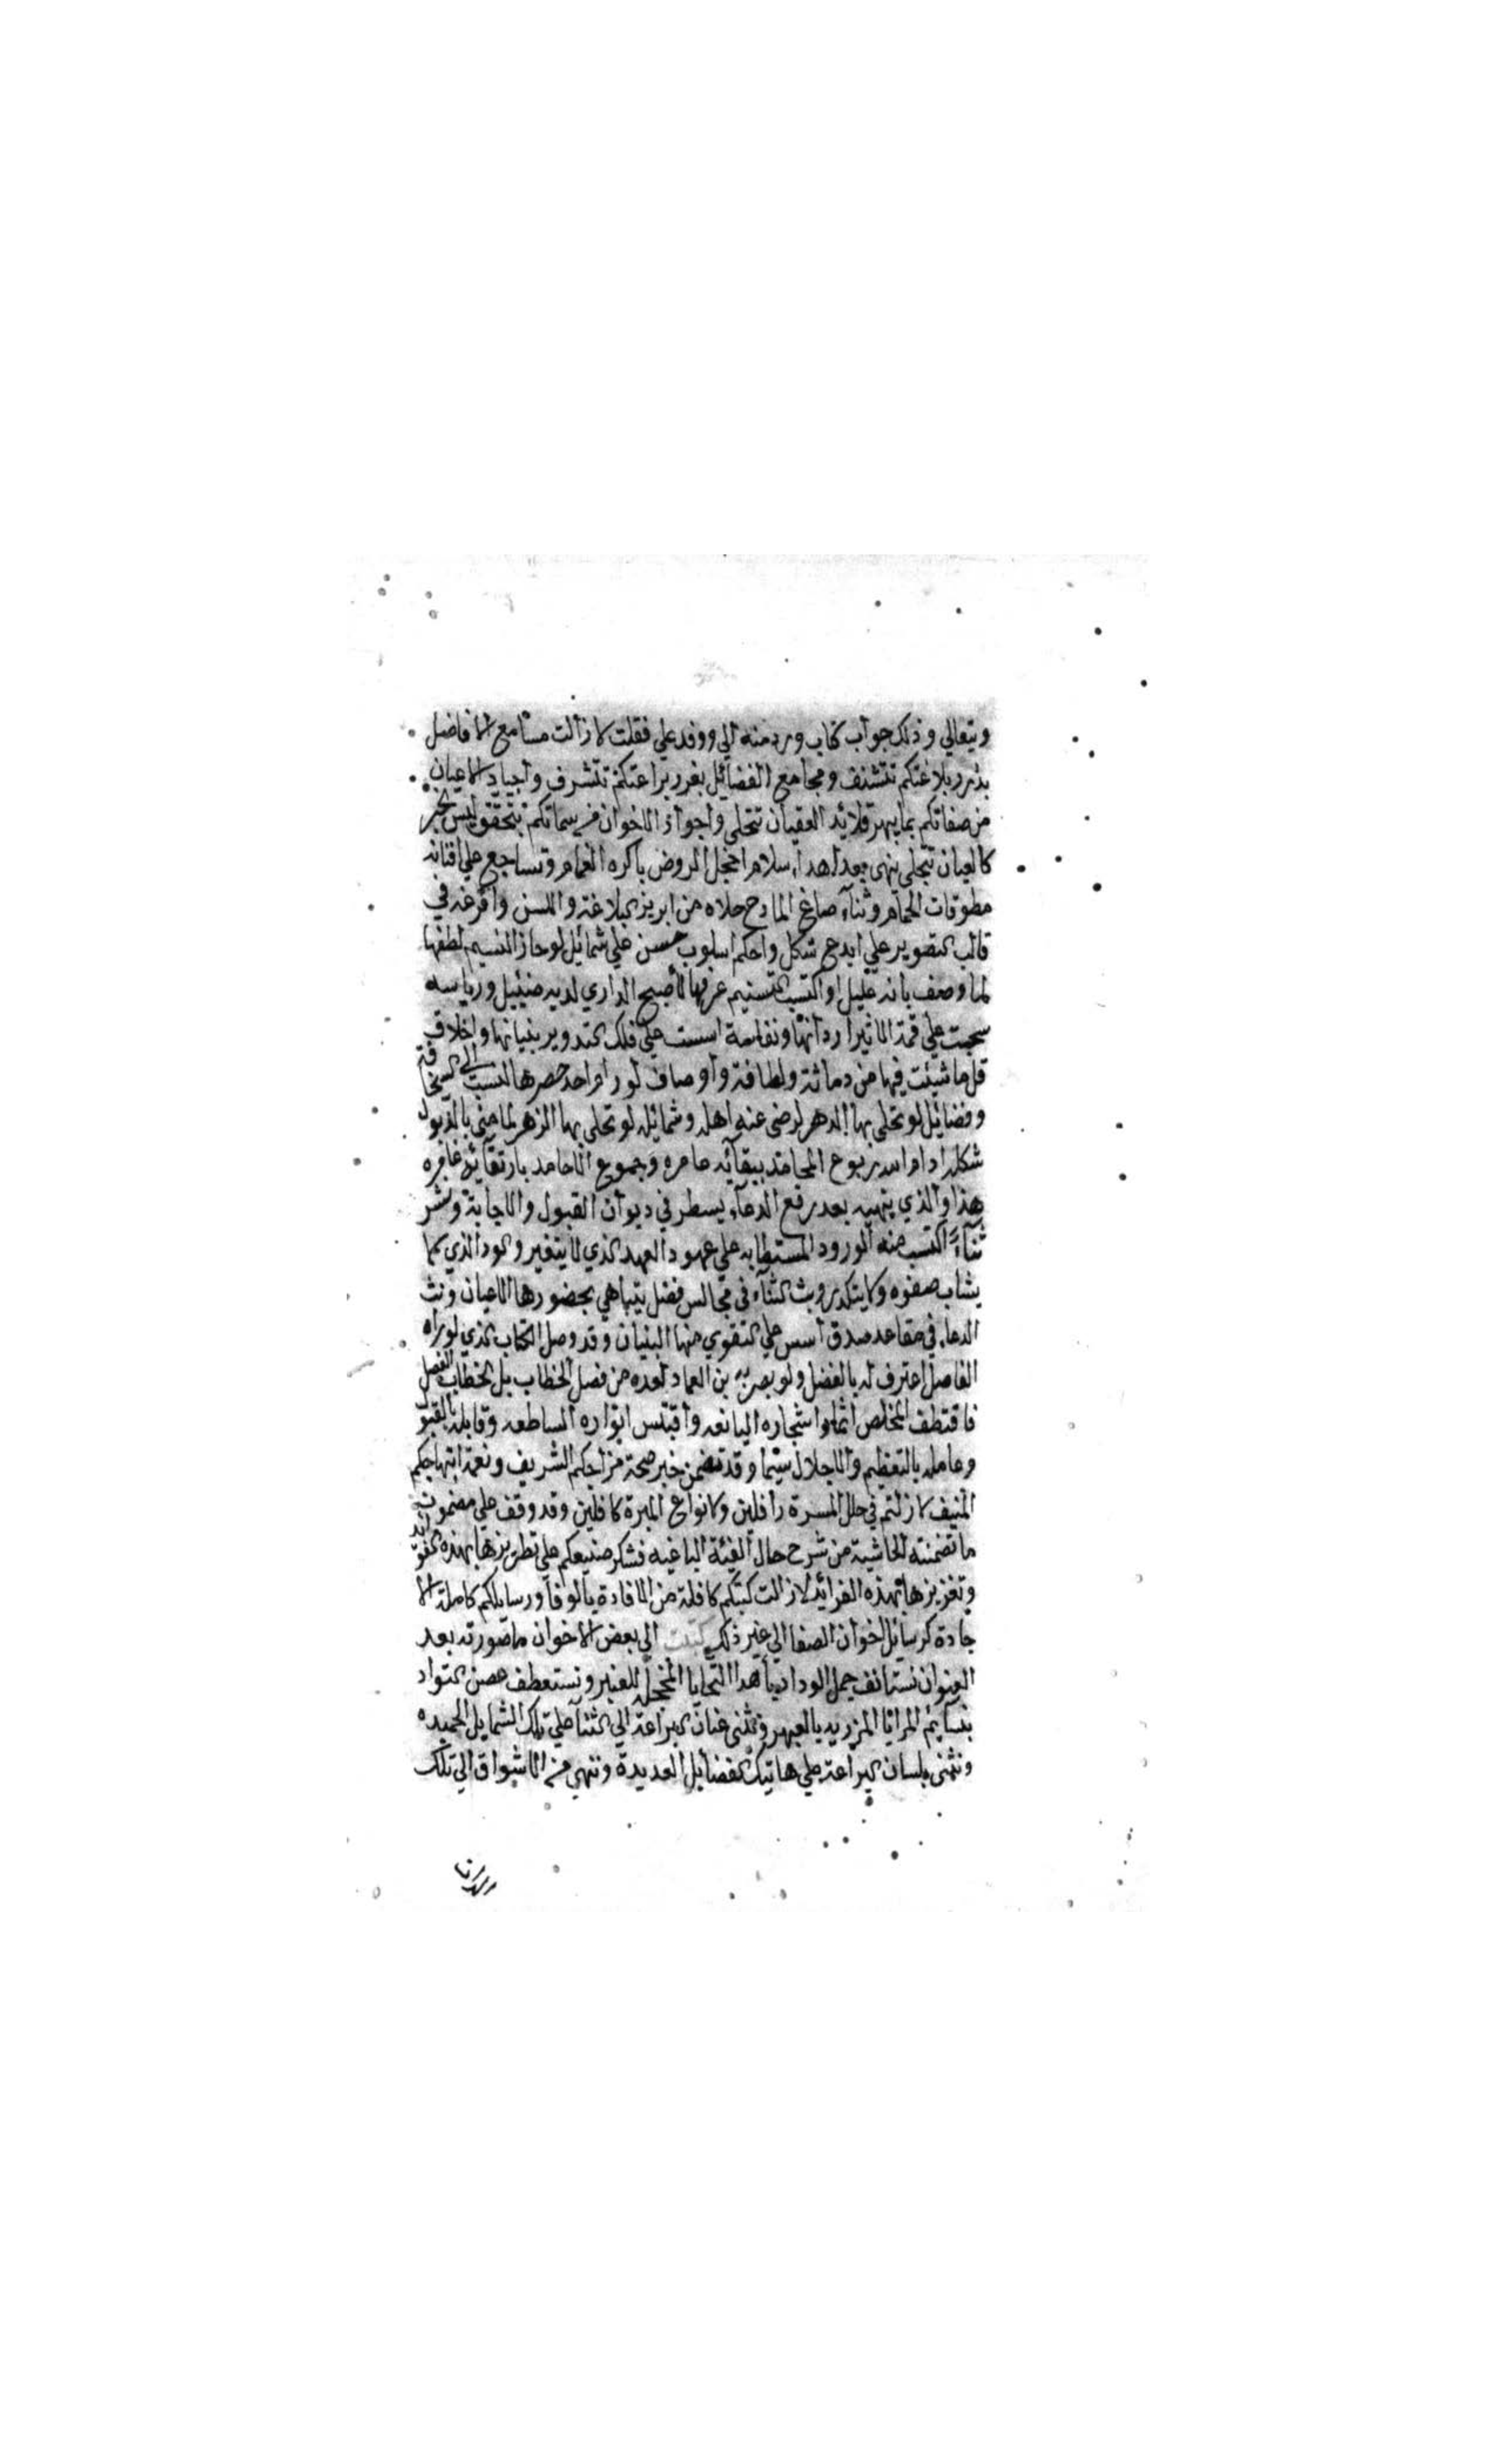 ويتعالي وذلك جواب كتاب ورد منه الي ووفد علي فقلت لا زالت مسامع الافاضل
بدرر بلاغتكم تتشنف ومجامع الفضائل بغرر براعتكم تتشرف واجياد الاعيان
من صفاتكم بما يبهر قلائد العقيان تتحلى واجواد الاخوان في سماتكم تتحقق ليس الخبر
كالعيان تتجلى ينهى بعد اهداء سلام اخجل الروض باكره الغمام وتساجع علي افنانه
مطوقات الحمام وثناء صاغ المادح حلاه من ابريز البلاغة واللسن وافرغه في
قالب التصوير علي ابدع شكل واحكم اسلوب حسن علي شمائل لو حاز النسيم لطفها
لما وصف بانه عليل او اكتسب التسنيم عرفها لأصبح الداري لديه ضئيل ورياسه
سحبت علي قمة الاثير اردانها ونفاسة اسست علي فلك التدوير بنيانها واخلاق
قل ما شئت فيها من دماثة ولطافة واوصاف لو رام احد حصرها لنسب الي السخافة
وفضائل لو تحلى بها الدهر لرضى عنه اهله وشمائل لو تحلى بها الزهر لما منى بالذبول
شكله ادام الله ربوع المحامد ببقائه عامره وجموع الاحامد بارتقائه غامره
هذا والذي ينهيه بعد رفع الدعاء يسطر في ديوان القبول والاجابة ونشر
ثناءً اكتسب منه الورود المستطابه علي عهود العهد الذي لا يتغير والود الذي لما
يشاب صفوه ولا يتكدر وبث الثناء في مجالس فضل يتباهي بحضورها الاعيان ونث
الدعاء في مقاعد صدق أسس علي التقوي منها البنيان وقد وصل الكتاب الذي لو رآه
الفاضل اعترف له بالفضل ولو بصر به بن العماد لعده من فصل الخطاب بل الخطاب الفصل
فاقتطف المخلص اثمار اشجاره اليانعه واقتبس انواره الساطعه وقابله بالقبول
وعامله بالتعظيم والاجلال سيما وقد تضمن خبر صحة مزاجكم الشريف ونعمة ابتهاجكم
المنيف لا زلتم في حلل المسرة رافلين ولانواع المبرة كافلين وقد وقف علي مضمون
ما تضمنته الحاشية من شرح حال الفئة الباغيه فشكر صنيعكم علي تطريزها بهذه الفوائد
وتعزيزها بهذه الفرائد لا زالت كتبكم كافلة من الافادة بالوفا ورسايلكم كاملة الا
جادة كرسائل اخوان الصفا الي غير ذلك كتبت الي بعض الاخوان ما صورته بعد
العنوان نستانف جمل الوداد باهدا التحايا المخجلة للعنبر ونستعطف غصن التواد
بنسايم المزايا المزريه بالعبهر ونثنى عنان اليراعة الي الثنا علي تلك الشمايل الحميده
ونثنى بلسان اليراعة علي هاتيك الفضايل العديدة وننهي من الاشواق الي تلك